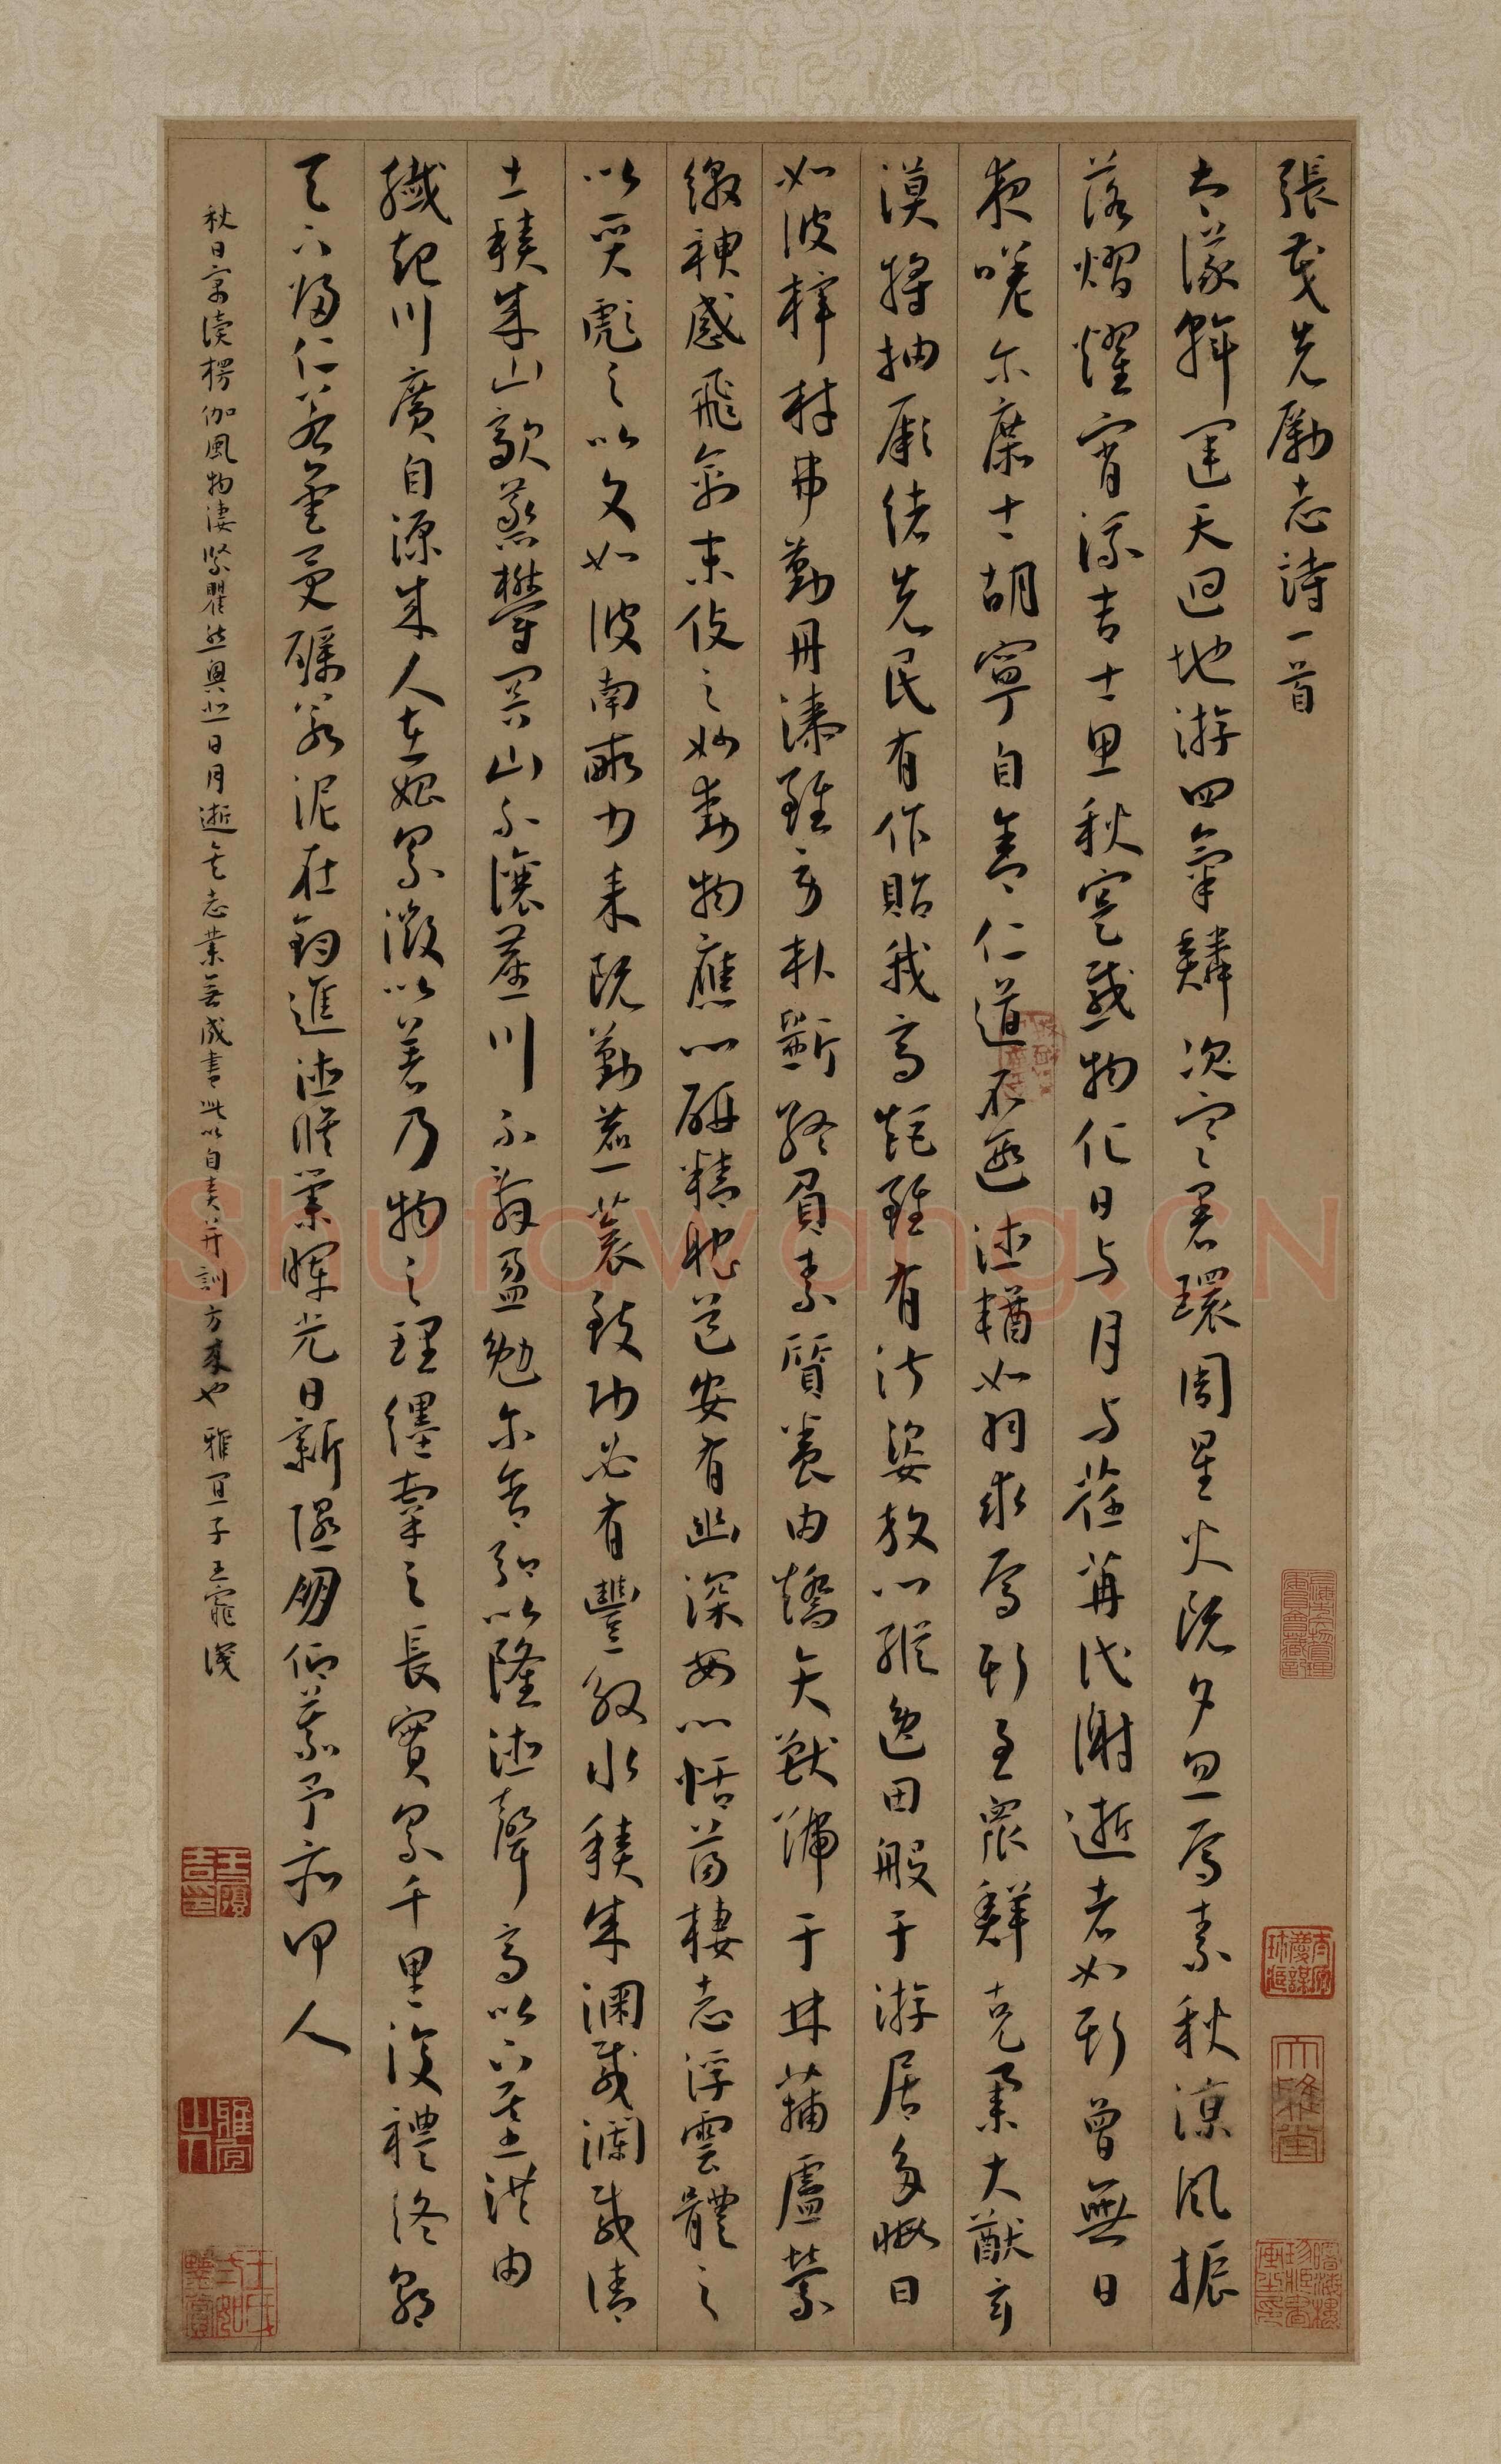 張茂先勵志詩一首
太儀斡運天迴地游四氣鱗次寒暑環周星火既夕忽焉素秋涼風振
落熠燿宵流吉士思秋寔感物化日与月与荏苒代謝逝者如斯曾無日
夜嗟尔庶士胡寧自舍仁道不遐德輶如羽求焉斯至衆鮮克舉大猷玄
漠將抽厥緒先民有作貽我高矩雖有淑姿放心縱逸田般于游居多暇日
如彼梓材弗勤丹漆雖勞朴斲終負素質養由矯矢獸號于林蒱盧縈
繳神感飛禽末伎之妙動物應心研精耽道安有幽深安心恬蕩棲志浮雲體之
以質彪之以文如彼南畝力耒既勤藨蓘致功必有豐殷水積成淵載瀾載清
土積成山歊蒸鬱冥山不讓塵川不辭盈勉尔含弘以隆德聲高以下基洪由
纖起川廣自源成人在始累微以著乃物之理纆牽之長實累千里復禮終朝
天下歸仁若金受礪若泥在鈞進德脩業暉光日新隰朋仰慕予亦何人
秋日寓讀楞伽風物淒緊瞿然興悲日月逝矣志業無成書此以自責并訓方來也 雅宜子王寵識
王履吉印
雅宜山人
大雅堂
Shufawang.CN